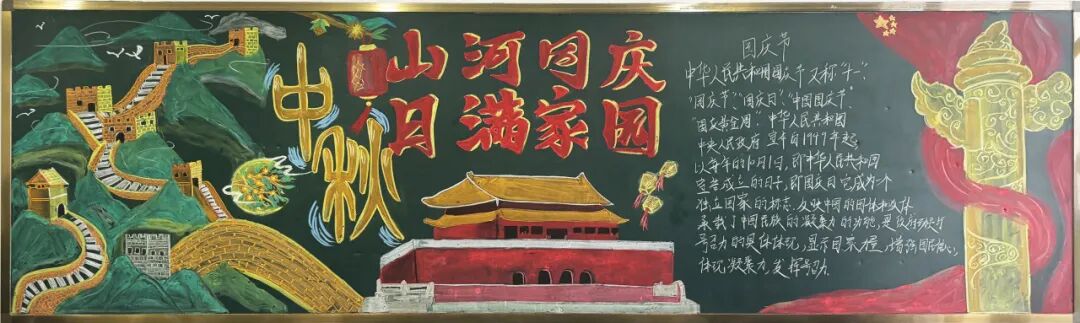 中秋
山河同庆
月满家园
国庆节
中华人民共和国国庆节又称"十一"、
"国庆节"、"国庆日"、"中国国庆节"、
"国庆黄金周"。中华人民共和国
中央人民政府宣布自1949年起,
以每年的10月1日,即中华人民共和国
宣告成立的日子,即国庆日它成为一个
独立国家的标志,反映中国的国体和政体
承载了中国民族的凝聚力的功能,更政府动员与
号召力的具体体现,显示力量、增强国民信心,
体现凝聚力,发挥号召力。